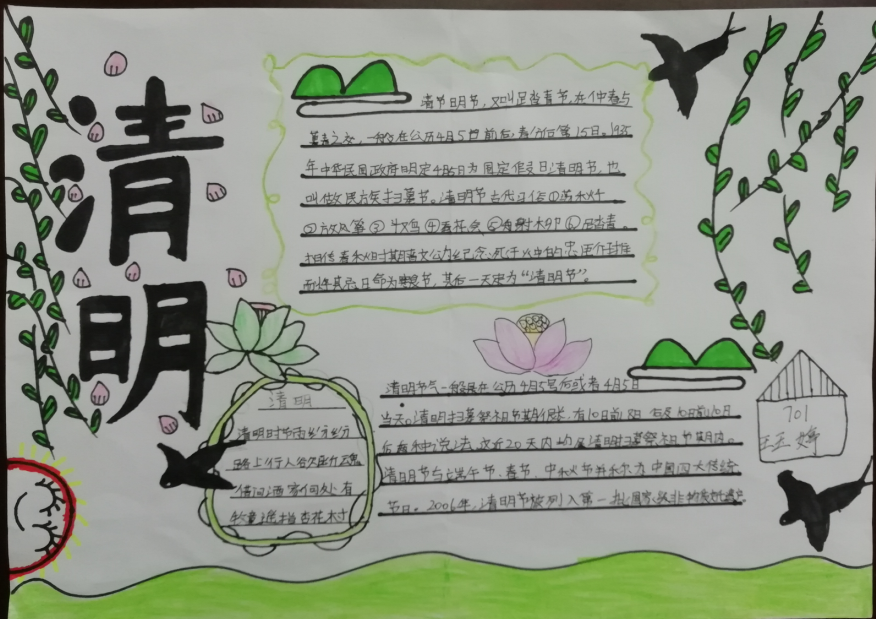 清明
清节日明节，又叫足沓青节，在仲春与
暮春之交，一般在公历4月5日前后，春分后第15日。1935
年中华民国政府明定4月5日为国定假日清明节，也
叫做民族扫墓节。清明节古代习俗①荡秋千
②放风筝③斗鸡④看花会⑤春射柳⑥足沓青。
相传春秋时期晋文公为纪念死于火中的忠臣介封推
而将其忌日命为寒食节，其后一天定为“清明节”。
清明
清明时节雨纷纷
路上行人欲断魂
借问酒家何处有
牧童遥指杏花村
清明节气一般是在公历4月5号后或者4月5日
当天。清明扫墓祭祖节期很长，有10日前8日后及10日前10日
后两种说法，这近20天内均属清明扫墓祭祖节期内。
清明节与端午节、春节、中秋节并称为中国四大传统
节日。2006年，清明节被列入第一批国家级非物质文化遗产
701
王